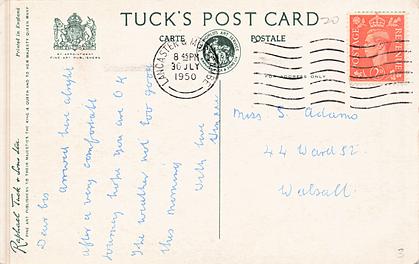 TUCK'S POST CARD
CARTE POSTALE
BY APPOINTMENT
FINE ART PUBLISHERS
LANCASTER &
8 45PM
30 JLY
1950
POSTAGE REVENUE
ADDRESS ONLY
Printed in England
Raphael Tuck & Sons Ltd.
FINE ART PUBLISHERS TO THEIR MAJESTIES THE KING & QUEEN AND TO HER MAJESTY QUEEN MARY
Dear
arrived here alright
after a very comfortable
hope you are O K
The weather not too good
this morning
With love
Miss S. Adams
44 Ward St.
Walsall